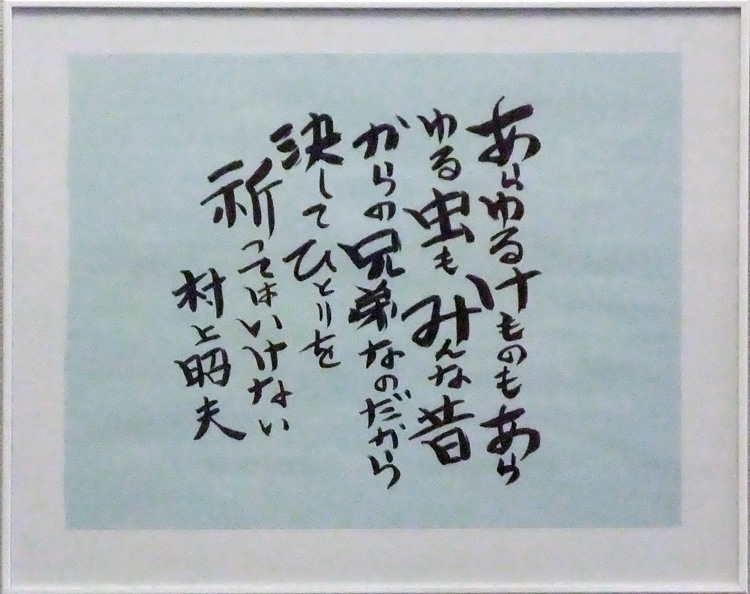 あらゆるけものもあら
ゆる虫もみんな昔
からの兄弟なのだから
決してひとりを
祈ってはいけない
村上昭夫